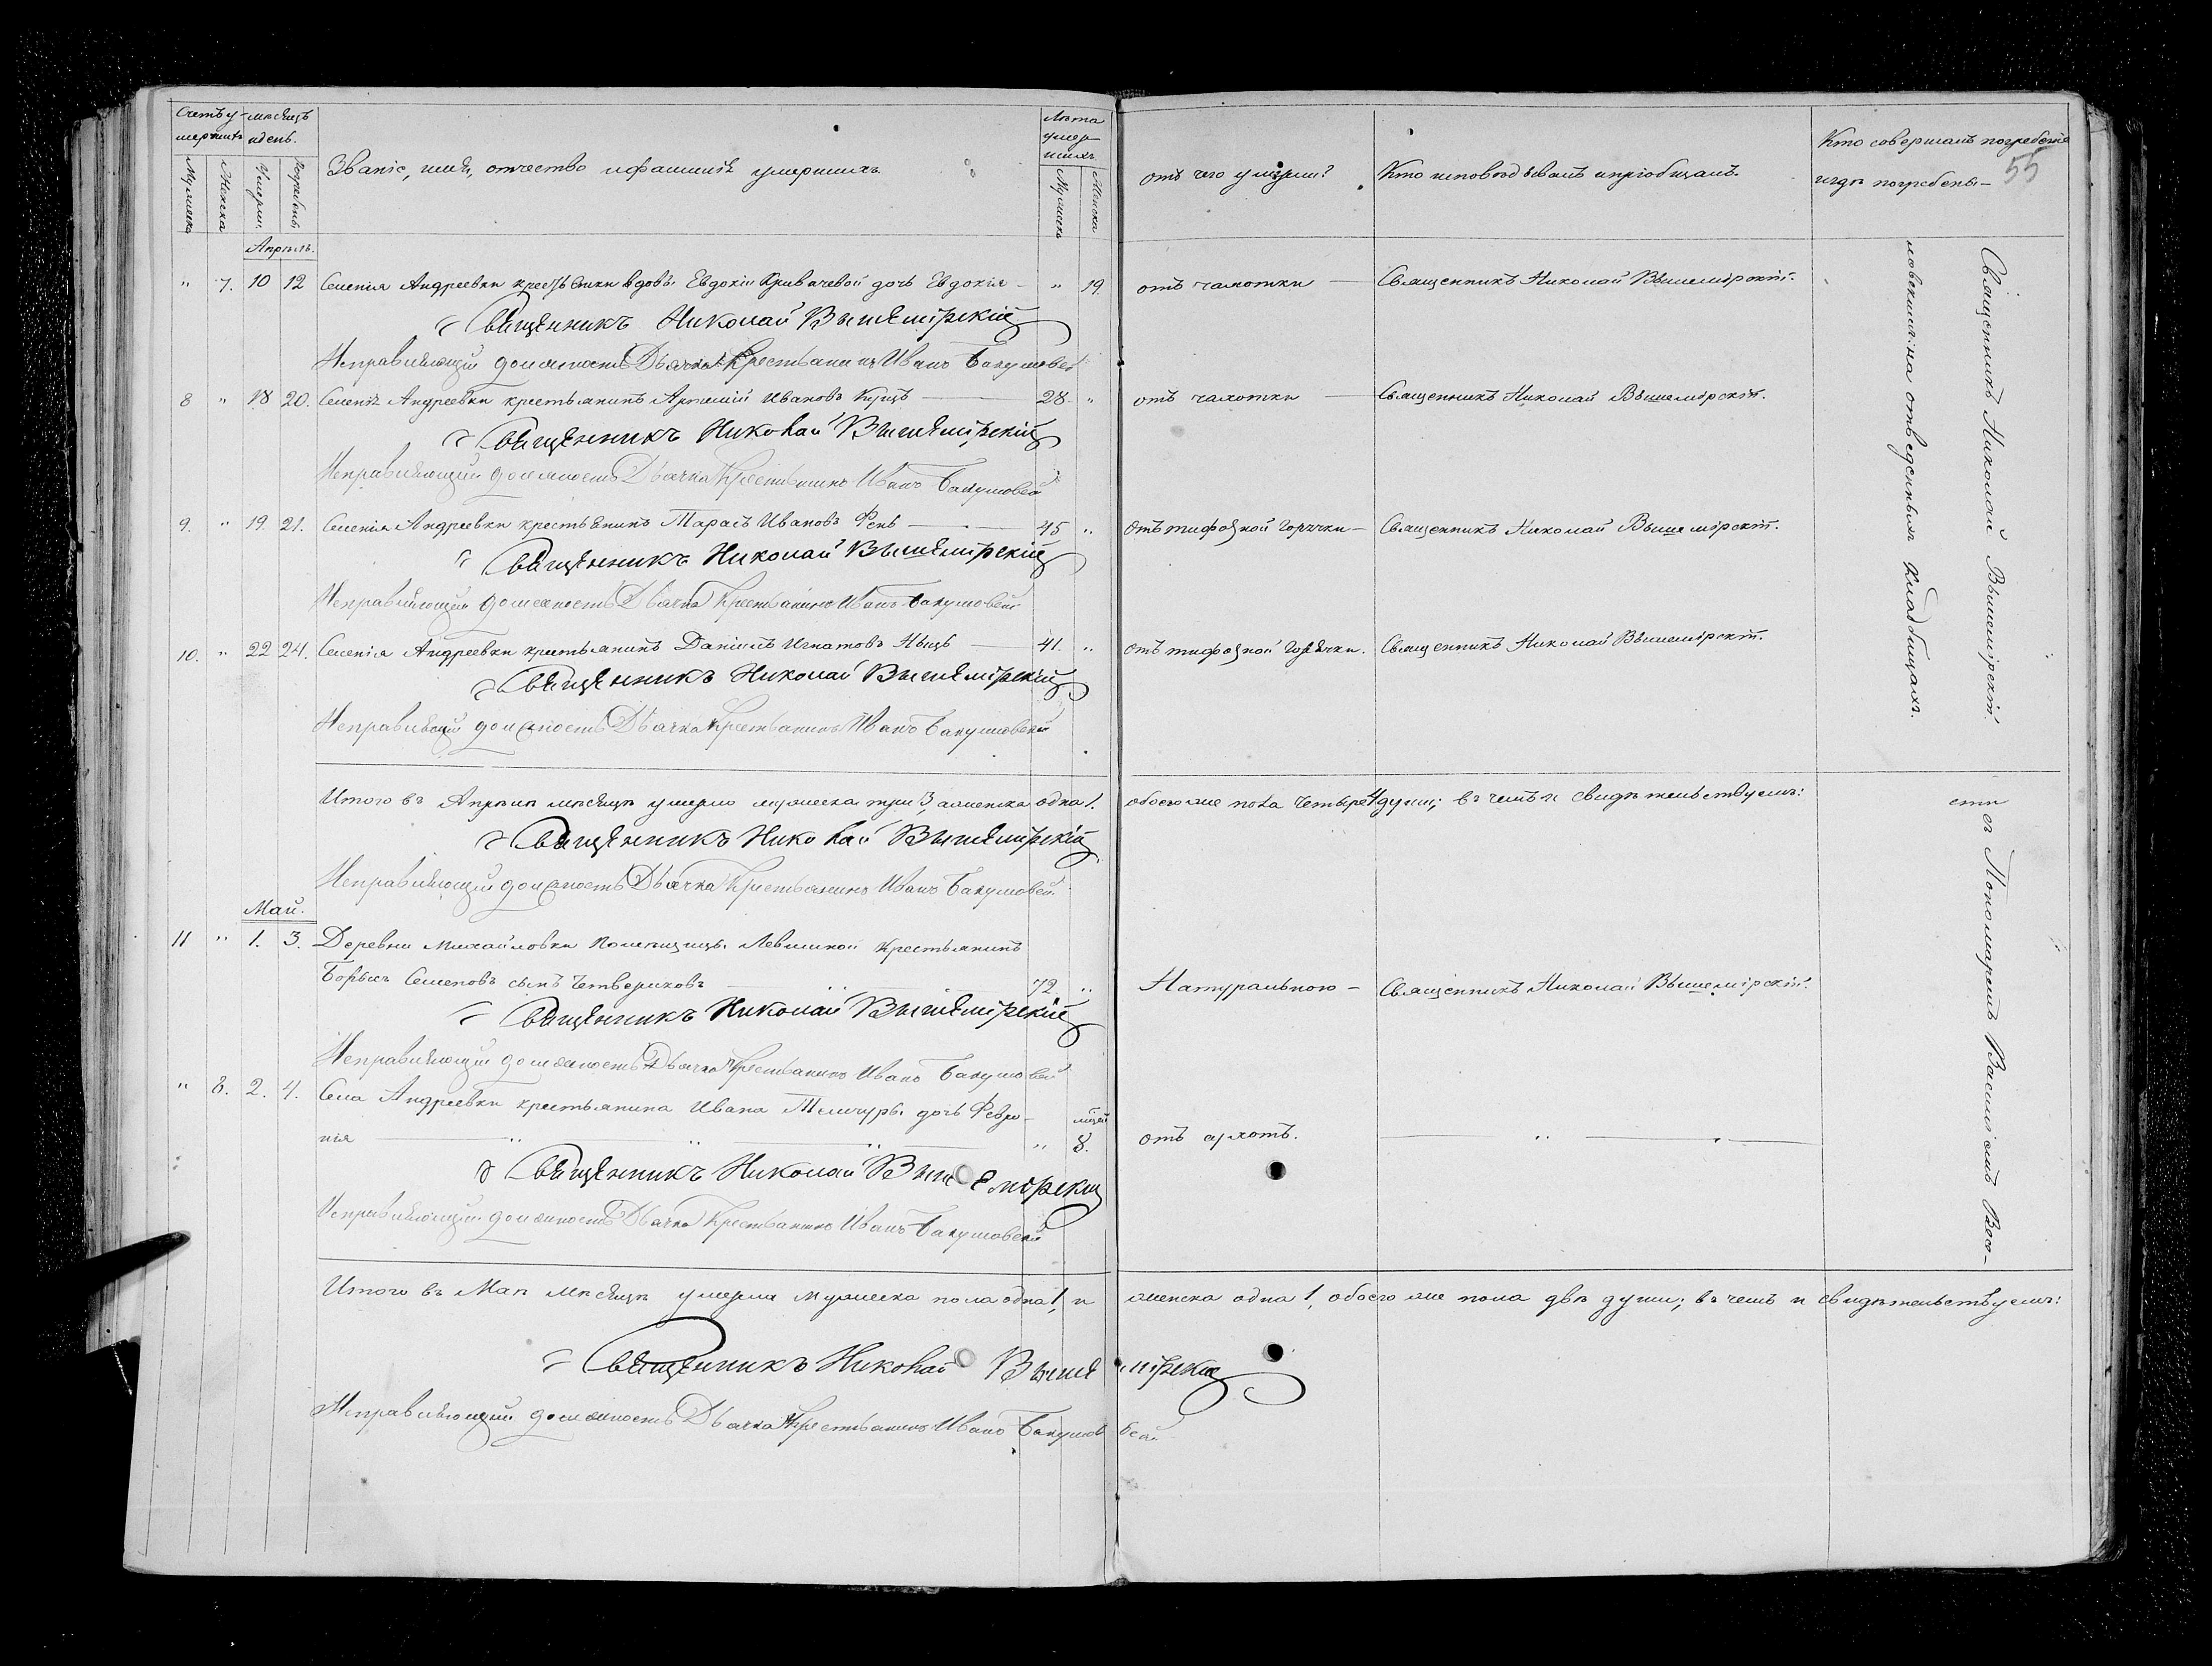 Счетъ у-
мершихъ
мѣсяцъ
и день.
Мужеска
Женска
Умерли.
Погребены
Званіе, имя, отчество и фамилія умершихъ.
Лѣта
умер-
шихъ.
Мужеска
Женска
отъ чего умерли?
Кто исповѣдывалъ и пріобщалъ.
Кто совершалъ погребеніе
и гдѣ погребены-
55
Апрѣль.
" 7. 10 12 Селенія Андреевки крестьянки вдовы Евдокіи Кривачевой дочь Евдокія - " 19. отъ чахотки — Священникъ Николай Вышемірскій.
Священникъ Николай Вышемірскій
Исправляющій должность Дьячка Крестьянинъ Иванъ Бакумовъ
8 " 18 20. Селенія Андреевки крестьянинъ Артемій Ивановъ Куцъ — 28. " отъ чахотки — Священникъ Николай Вышемірскій.
Священникъ Николай Вышемірскій
Исправляющій должность Дьячка Крестьянинъ Иванъ
9. " 19. 21. Селенія Андреевки крестьянинъ Тарасъ Ивановъ Фень — 45 " Отъ тифозной горячки — Священникъ Николай Вышемірскій.
Священникъ Николай Вышемірскій
Исправляющій должность Дьячка Крестьянинъ Иванъ
10. " 22 24. Селенія Андреевки крестьянинъ Даніилъ Игнатовъ — 41. " отъ тифозной Горячки. Священникъ Николай Вышемірскій.
Священникъ Николай Вышемірскій
Исправляющій должность Дьячка Крестьянинъ Иванъ
Итого въ Апрѣлѣ мѣсяцѣ умерло мужеска три 3, а женска одна 1. обоего же пола четыре 4 души; въ чемъ и свидѣтельствуемъ:
Священникъ Николай Вышемірскій
Исправляющій должность Дьячка Крестьянинъ Иванъ
Май.
11 " 1. 3. Деревни Михайловки Помѣщицы Левшиной Крестьянинъ
Борисъ Семеновъ сынъ Четвериковъ 72. " Натуральною — Священникъ Николай Вышемірскій.
Священникъ Николай Вышемірскій
Исправляющій должность Дьячка Крестьянинъ Иванъ
" 8. 2. 4. Села Андреевки крестьянина Ивана дочь Февро-
нія " мѣсяц. 8. отъ сухотъ.
Священникъ Николай Вышемірскій
Исправляющій должность Дьячка Крестьянинъ Иванъ
Итого въ Маѣ мѣсяцѣ умерла мужеска пола одна 1, и женска одна 1, обоего же пола двѣ души; въ чемъ и свидѣтельствуемъ:
Священникъ Николай Вышемірскій
Исправляющій должность Дьячка Крестьянинъ Иванъ
Священникъ Николай Вышемірскій.
съ Пономаремъ Василіемъ
на отведенныхъ Кладбищахъ.